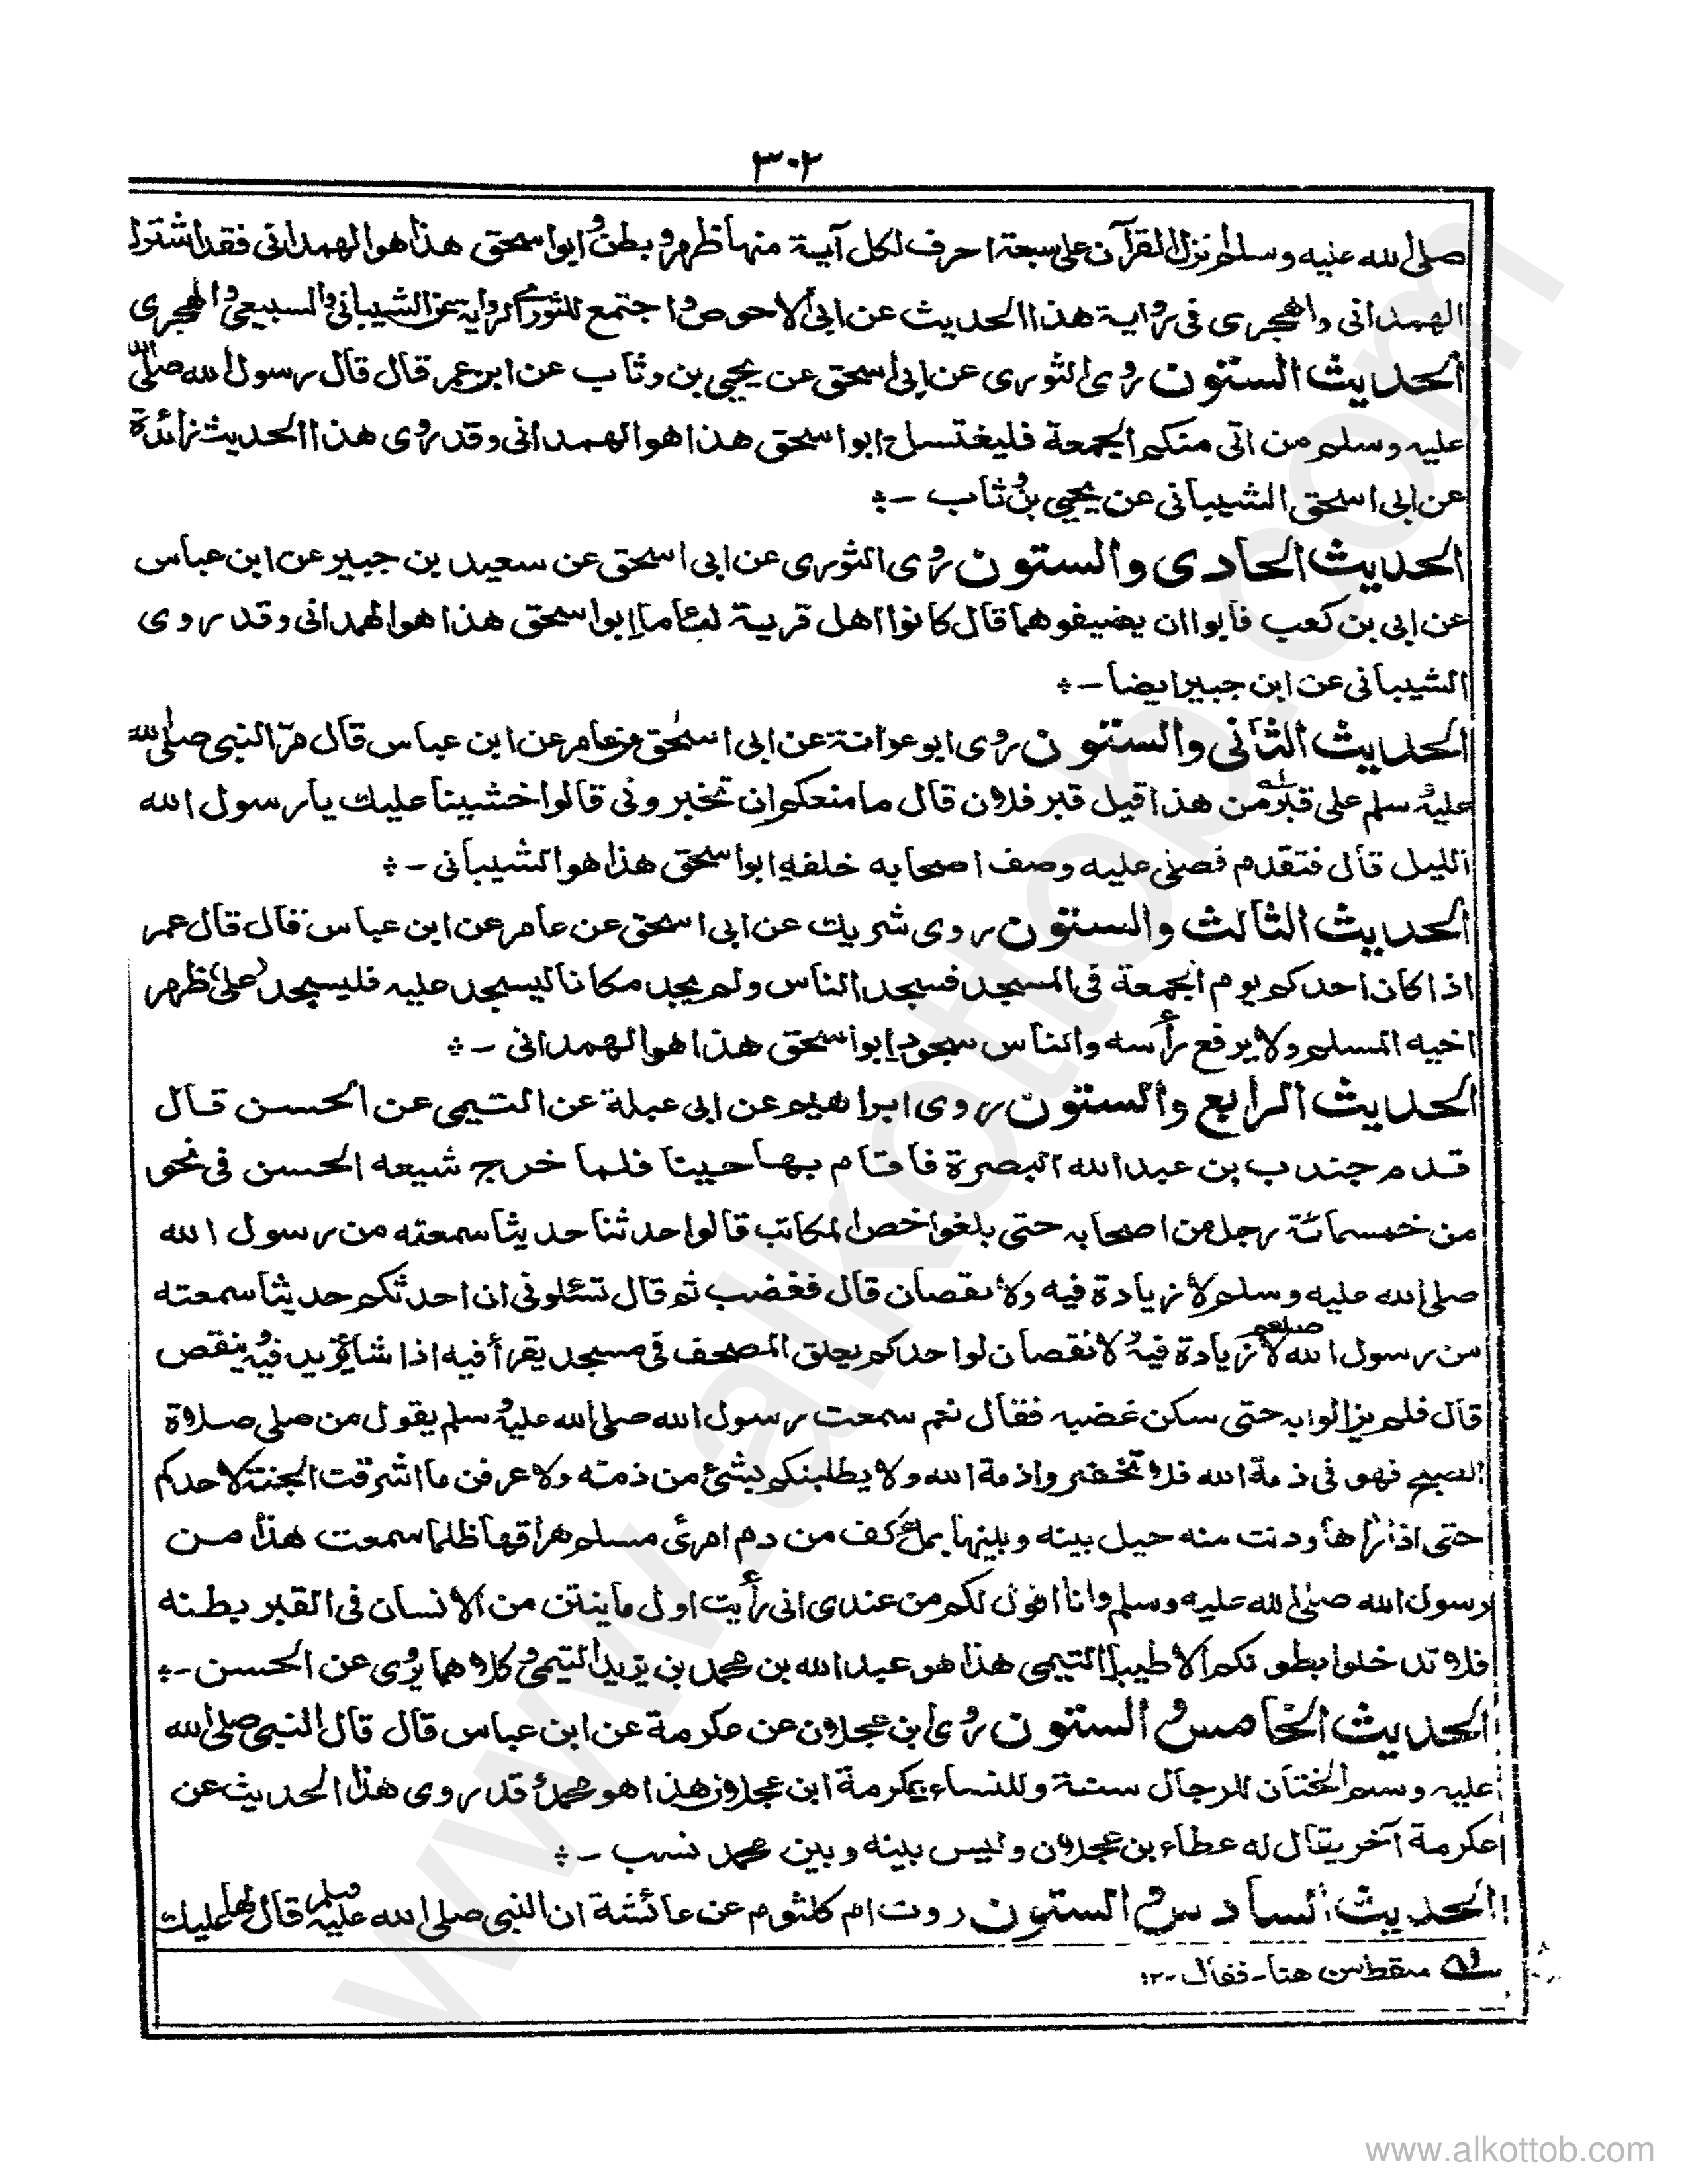 ٣٠٢
صلى الله عليه وسلم نزل القرآن على سبعة احرف لكل آية منها ظهر وبطن وابو اسحق هذا هو الهمداني فقد اشترك
الهمداني والهجرى فى رواية هذا الحديث عن ابى الاحوص واجتمع للثورى الرواية عن الشيبانى والسبيعى والهجرى
الحديث الستون روى الثورى عن ابى اسحق عن يحيى بن وثاب عن ابن عمر قال قال رسول الله صلى الله
عليه وسلم من اتى منكم الجمعة فليغتسل ابو اسحق هذا هو الهمدانى وقد روى هذا الحديث زائدة
عن ابى اسحق الشيبانى عن يحيى بن وثاب -
الحديث الحادى والستون روى الثورى عن ابى اسحق عن سعيد بن جبير عن ابن عباس
عن ابى بن كعب فابوا ان يضيفوهما قال كانوا اهل قرية لئاما ابو اسحق هذا هو الهمدانى وقد روى
الشيبانى عن ابن جبير ايضا -
الحديث الثانى والستون روى ابو عوانة عن ابى اسحق عن عامر عن ابن عباس قال مر النبى صلى الله
عليه وسلم على قبر من هذا قيل قبر فلان قال ما منعكم ان تخبرونى قالوا خشينا عليك يا رسول الله
الليل قال فتقدم فصلى عليه وصف اصحابه خلفه ابو اسحق هذا هو الشيبانى -
الحديث الثالث والستون روى شريك عن ابى اسحق عن عامر عن ابن عباس قال قال عمر
اذا كان احدكم يوم الجمعة فى المسجد فسجد الناس ولم يجد مكانا ليسجد عليه فليسجد على ظهر
اخيه المسلم ولا يرفع رأسه والناس سجود ابو اسحق هذا هو الهمدانى -
الحديث الرابع والستون روى ابراهيم عن ابى عبلة عن التيمى عن الحسن قال
قدم جندب بن عبد الله البصرة فاقام بها حينا فلما خرج شيعه الحسن فى نحو
من خمسمائة رجل من اصحابه حتى بلغوا خص المكاتب قالوا حدثنا حديثا سمعته من رسول الله
صلى الله عليه وسلم لا زيادة فيه ولا نقصان قال فغضب ثم قال تسئلونى ان احدثكم حديثا سمعته
من رسول الله صلعم لا زيادة فيه ولا نقصان لو احدكم يعلق المصحف فى مسجد يقرأ فيه اذا شاء يزيد فيه وينقص
قال فلم يزالوا به حتى سكن غضبه فقال نعم سمعت رسول الله صلى الله عليه وسلم يقول من صلى صلاة
الصبح فهو فى ذمة الله فلا تخفروا ذمة الله ولا يطلبنكم بشئ من ذمته ولا عرفن ما اشرقت الجنة لاحدكم
حتى اذا رآها ودنت منه حيل بينه وبينها بملء كف من دم امرئ مسلم هراقها ظلما سمعت هذا من
رسول الله صلى الله عليه وسلم وانا اقول لكم من عندى انى رأيت اول ما ينتن من الانسان فى القبر بطنه
فلا تدخلوا بطونكم الا طيبا التيمى هذا هو عبد الله بن محمد بن يزيد التيمى وكلاهما يروى عن الحسن -
الحديث الخامس والستون روى ابن عجلان عن عكرمة عن ابن عباس قال قال النبى صلى الله
عليه وسلم الختان للرجال سنة وللنساء مكرمة ابن عجلان هذا هو محمد وقد روى هذا الحديث عن
عكرمة آخر يقال له عطاء بن عجلان وليس بينه وبين محمد نسب -
الحديث السادس والستون روت ام كلثوم عن عائشة ان النبى صلى الله عليه وسلم قال لها عليك
سقط من هنا - فقال - ١٢
www.alkottob.com
www.alkottob.com